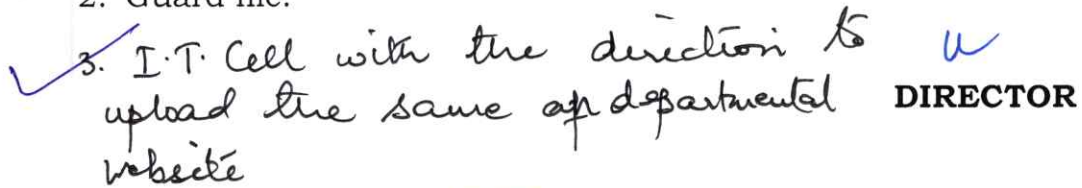 2. Guard file.
3. I.T. Cell with the direction to
upload the same departmental
website
DIRECTOR